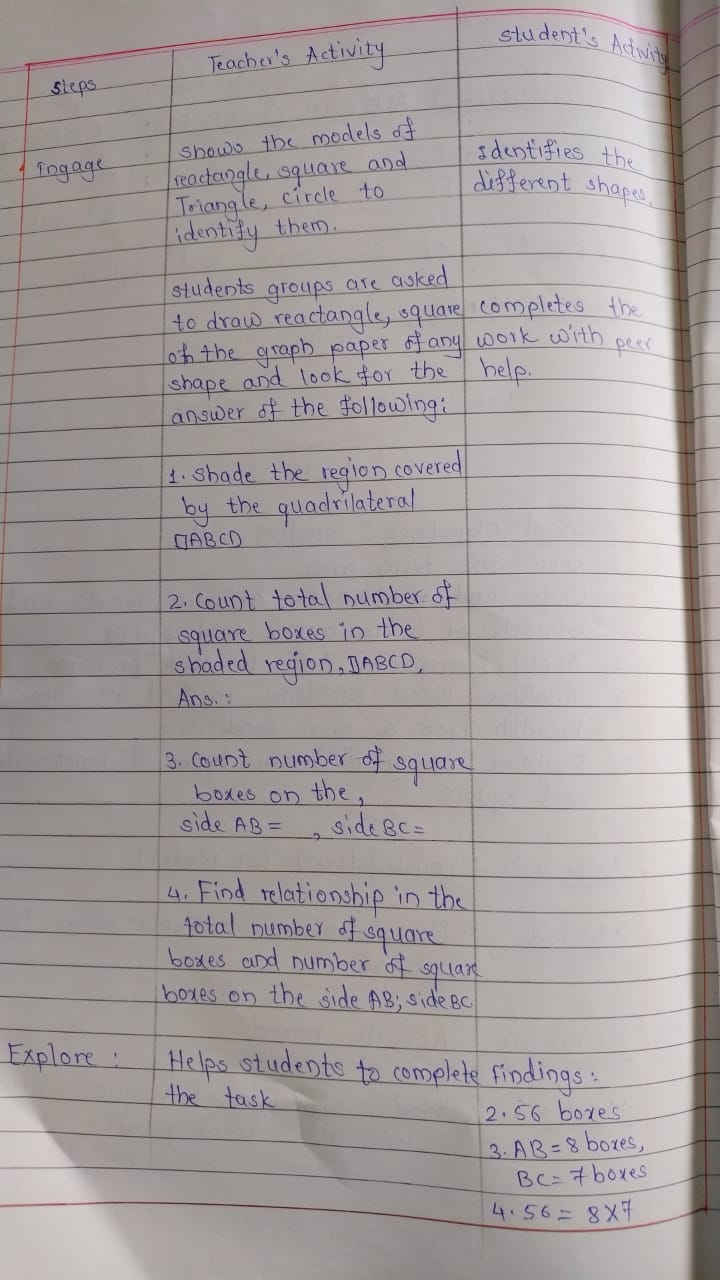 Steps
Teacher's Activity
Student's Activity
Engage
shows the models of
reactangle, square and
Triangle, circle to
identify them.
Identifies the
different shapes.
students groups are asked
to draw reactangle, square
of the graph paper of any
shape and look for the
answer of the following:
completes the
work with peer
help.
1. Shade the region covered
by the quadrilateral
□ABCD
2. Count total number of
square boxes in the
shaded region, □ABCD.
Ans. :
3. Count number of square
boxes on the,
side AB = , side BC =
4. Find relationship in the
total number of square
boxes and number of square
boxes on the side AB; side BC
Explore :
Helps students to complete
the task
findings :
2. 56 boxes
3. AB = 8 boxes,
BC = 7 boxes
4. 56 = 8X7